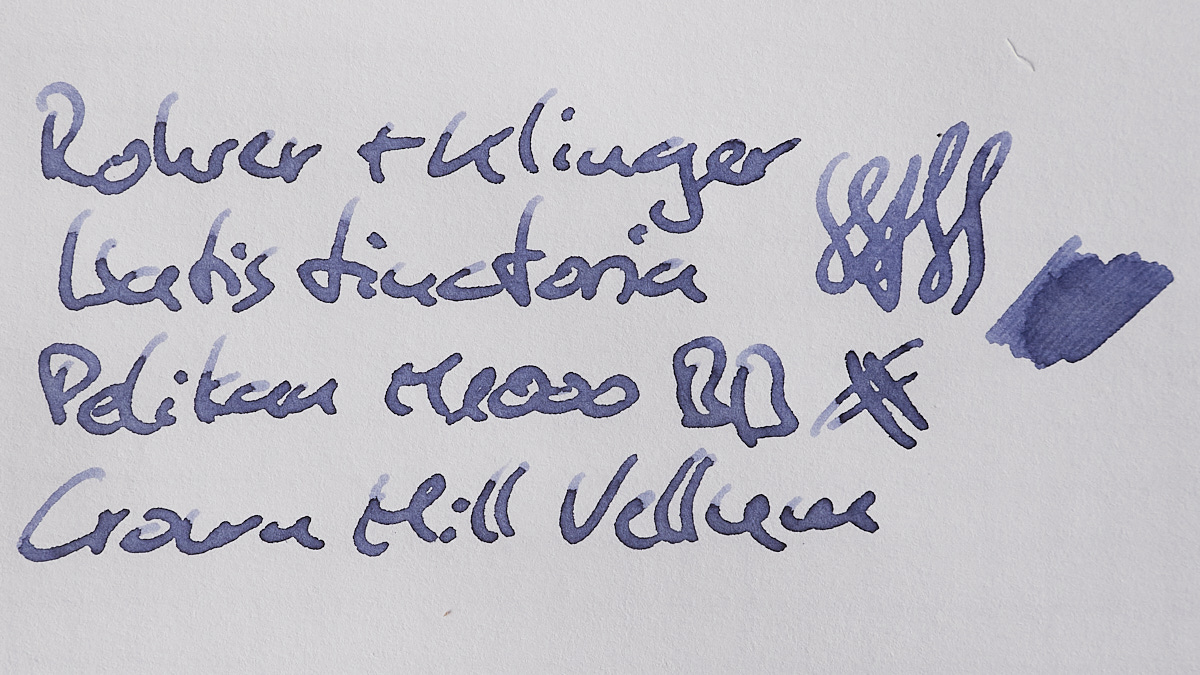 Rohrer + Klinger
Isatis tinctoria
Pelikan M1000 BB
Crown Mill Vellum